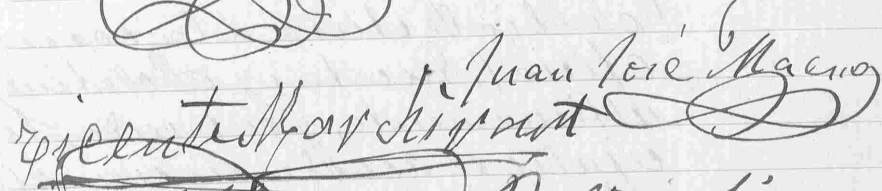 Juan José Macno
Vicente Marchirant